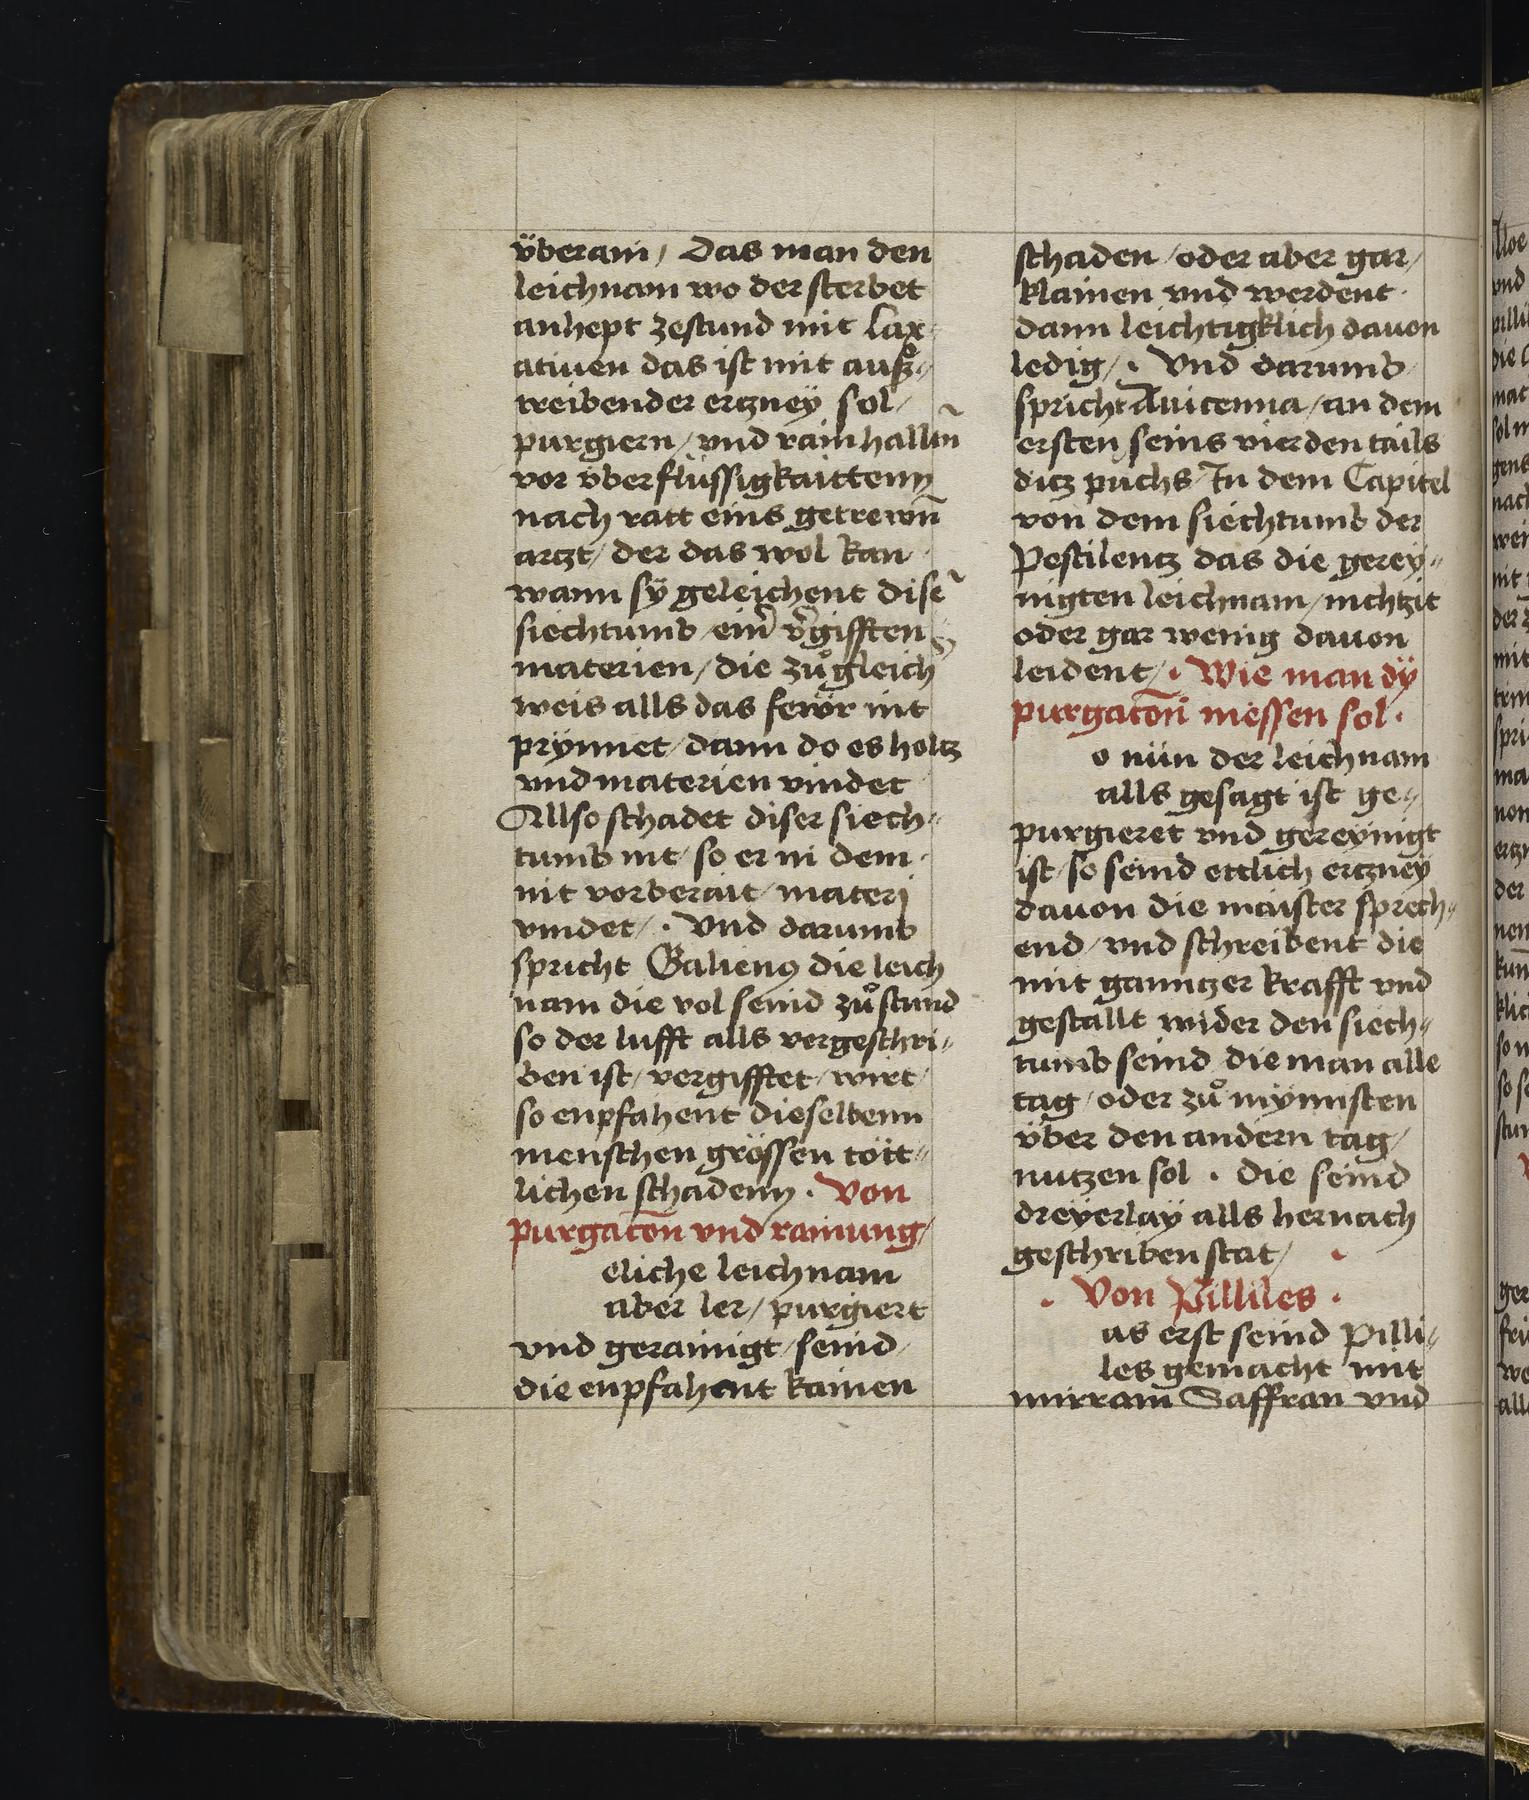 überain / Das man den
leichnam wo der sterbet
anhept zestund mit Lax
atiuen das ist mit auß⸗
treibender erczneÿ sol /
purgiern / vnd rain hallñ
vor überflüssigkaittenn
nach ratt eins getrewñ
arczt / der das wol kan
wann sÿ geleichent dise᷑
siechtumb / eim̃ v᷑gifften
materien / die zuͦ gleich᷑
weis alls das fewr nit
prÿnnet / dann do es holtz
vnd materien vindet
Allso schadet diser siech⸗
tumb nit / so er in dem
nit vorberait / materj
vindet / · Vnd darumb
spricht Galienꝰ die leich
nam die vol seind zuͦ stund
so der lufft alls vorgeschri⸗
ben ist / vergifftet / wirt /
so enpfahent dieselbenn
menschen grössen tött⸗
lichen schadenn · Von
purgatõn vnd rainung /
eliche leichnam
aber ler / purgiert
vnd gerainigt / seind /
die enpfahent kainen
schaden / oder aber gar /
klainen vnd werdent
dann leichtigklich dauon
ledig / · Vnd darumb /
spricht Auicenna / an dem
ersten seins vierden tails
ditz puchs / In dem Capitel
von dem siechtumb der
Pestilentz das die gereÿ⸗
nigten leichnam / nichtzit
oder gar wenig dauon
leident / · Wie man dÿ
purgatõn messen sol ·
o nün der leichnam
alls gesagt ist ge⸗
purgieret vnd gereÿnigt
ist / so seind ettlich erczneÿ
dauon die maister sprech⸗
end / vnd schreibent die
mit ganntzer krafft vnd
gestallt wider den siech⸗
tumb seind die man alle
tag / oder zuͦ mÿnnsten
über den andern tag /
nutzen sol · die seind
dreÿerlaÿ alls hernach
geschriben stat /
· Von Pilliles ·
as erst seind Pilli⸗
les gemacht mit
mirram Saffran vnd